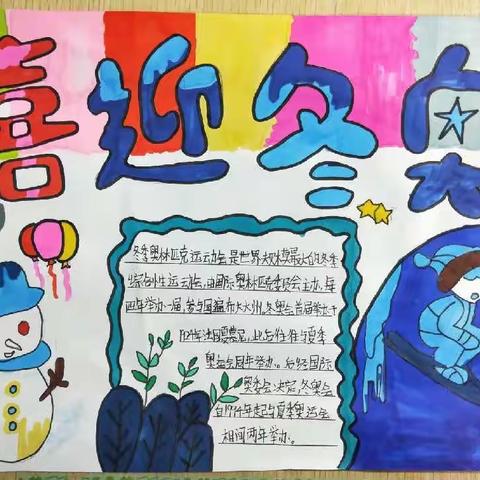 喜迎冬奥
冬季奥林匹克运动会是世界规模最大的冬季
综合性运动会,由国际奥林匹克委员会主办,每
四年举办一届,参与国遍布大州,冬奥会首届举办于
年法国夏蒙尼,此后往往与夏季
奥运会同年举办。后经国际
奥委会决定,冬奥会
自1994年起与夏季奥运会
相间两年举办。